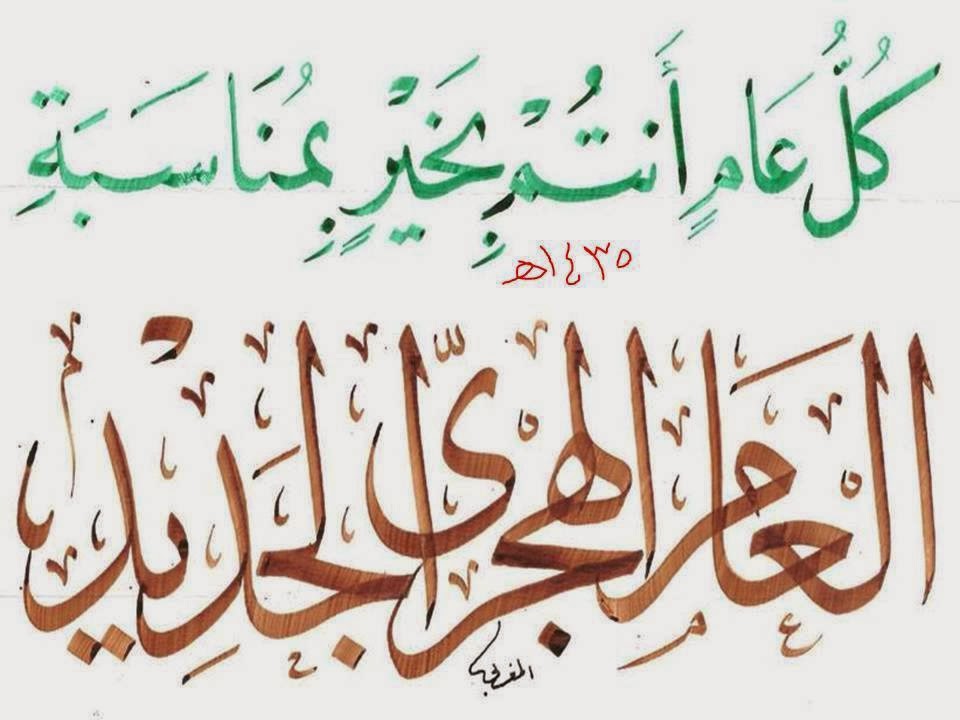 كُلُّ عَامٍ أَنتُمْ بِخَيْرٍ بِمُنَاسَبَةِ
١٤٣٥هـ
الْعَام الهْجرىّ الجَدِيد